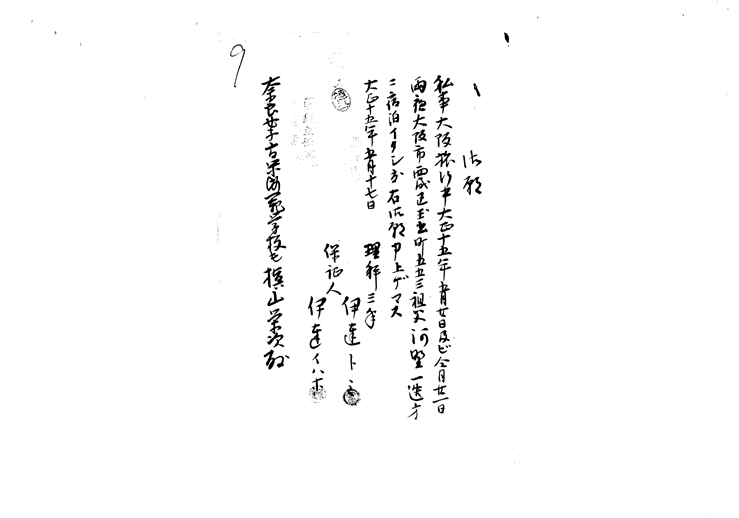 9
御願
私事大阪旅行中大正十五年五月廿日及ビ仝月廿一日
両夜大阪市西成区玉出町五五三祖父河野一逸方
ニ宿泊イタシ度右御願申上ゲマス
大正十五年五月十七日
理科三年
伊達ト
保証人
伊達イハホ
奈良女子高等師範学校長槇山栄次殿